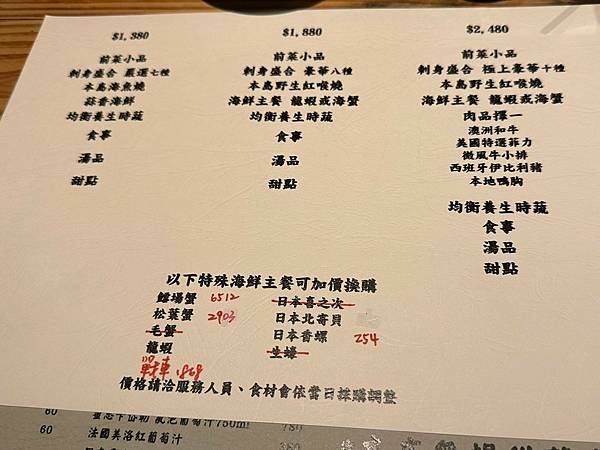 $1,380
前菜小品
刺身盛合 嚴選七種
本島海煮燒
蒜香海鮮
均衡養生時蔬
食事
湯品
甜點
$1,880
前菜小品
刺身盛合 豪華八種
本島野生紅喉燒
海鮮主餐 龍蝦或海蟹
均衡養生時蔬
食事
湯品
甜點
$2,480
前菜小品
刺身盛合 極上豪華十種
本島野生紅喉燒
海鮮主餐 龍蝦或海蟹
肉品擇一
澳洲和牛
美國特選菲力
微風牛小排
西班牙伊比利豬
本地鴨胸
均衡養生時蔬
食事
湯品
甜點
以下特殊海鮮主餐可加價換購
鱈場蟹 6512
松葉蟹 2903
毛蟹
龍蝦
1868
日本喜之次
日本北寄貝
日本香螺 254
生蠔
價格請洽服務人員、食材會依當日採購調整
60
750ml
780
60 法國美洛紅葡萄汁